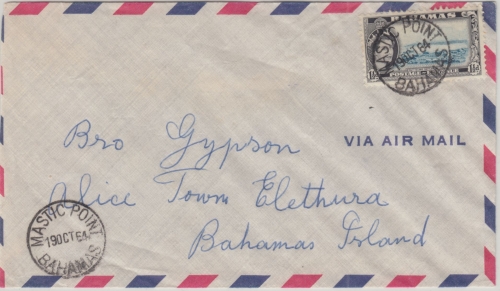 BAHAMAS
MASTIC POINT
19 OCT 64
BAHAMAS
POSTAGE
VIA AIR MAIL
Bro Gypson
Alice Town Elethura
Bahamas Island
MASTIC POINT
19 OCT 64
BAHAMAS